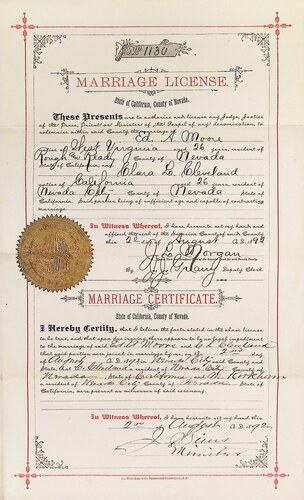 No 1130
MARRIAGE LICENSE.
State of California, County of Nevada.
These Presents are to authorize and license any Judge, Justice
of the Peace, Priest or Minister of the Gospel of any denomination, to
solemnize within said County the marriage of
Ed. A. Moore
native of West Virginia aged 26 years, resident of
Rough and Ready County of Nevada
State of California and Clara L. Cleveland
native of California aged 26 years, resident of
Nevada City County of Nevada
State of California. Said parties being of sufficient age and capable of contracting
marriage.
In Witness Whereof, I have hereunto set my hand and
affixed the seal of the Superior Court of said County
this 2nd day of August A.D. 1892
J. L. Morgan
Deputy Clerk.
MARRIAGE CERTIFICATE.
State of California, County of Nevada.
I Hereby Certify, that I believe the facts stated in the above license
to be true, and that upon due inquiry there appears to be no legal impediment
to the marriage of said Ed. A. Moore and C. L. Cleveland
that said parties were joined in marriage by me, on the 2nd day
of August A.D. 1892 in Nevada City County and
State, that C. Cleveland a resident of Nevada City County of
Nevada State of California and
a resident of Nevada City County of Nevada State of
California, were present as witnesses of said ceremony.
In Witness Whereof, I have hereunto set my hand this
2nd day of August A.D. 1892
J. Sims
Minister